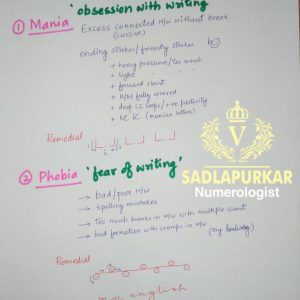 'obsession with writing'
① Mania
Excess connected H/W without break
(cursive)
ending strokes/friendly stroke
+ heavy pressure/too much
+ light "
+ forward slant
+ R/M fully covered
+ deep LZ loops/+ve pastivity
+ NC LC (maniac letters)
Remedial
② Phobia 'fear of writing'
→ bad/poor H/W
→ spelling mistakes
→ too much breaks in H/W with multiple slant
→ bad formation with cramps in H/W (my handwriting)
Remedial
my english
V
SADLAPURKAR
Numerologist